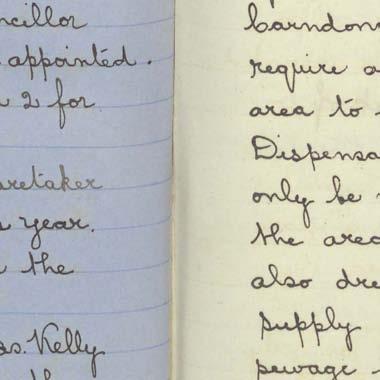 ncillor
appointed.
2 for
aretaker
year.
the
as. Kelly
the
Carndon
require a
area to
Dispensa
only be
the area
also dre
supply
sewage